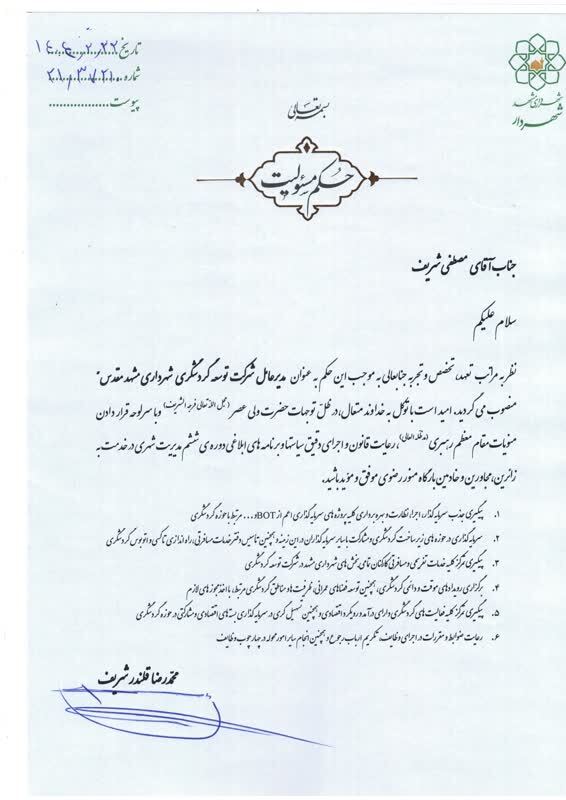 تاریخ ۱۴۰۴،۲،۲۲
شماره ۲۱،۳،۷۲۱۰
پیوست
شهرداری مشهد
شهردار
بسمه تعالی
حکم مسئولیت
جناب آقای مصطفی شریف
سلام علیکم
نظر به مراتب تعهد، تخصص و تجربه جنابعالی به موجب این حکم به عنوان مدیرعامل شرکت توسعه گردشگری شهرداری مشهد مقدس"
منصوب می گردید. امید است با توکل به خداوند متعال، در ظل توجهات حضرت ولی عصر (عجل الله تعالی فرجه الشریف) و با سرلوحه قرار دادن
منویات مقام معظم رهبری (مدظله العالی)، رعایت قانون و اجرای دقیق سیاستها و برنامه های ابلاغی دوره ی ششم مدیریت شهری در خدمت به
زائرین، مجاورین و خادمین بارگاه منور رضوی موفق و مؤید باشید.
۱. پیگیری جذب سرمایه گذار، اجرا، نظارت و بهره برداری کلیه پروژه های سرمایه گذاری اعم از BOT و... مرتبط با حوزه گردشگری
۲. سرمایه گذاری در حوزه های زیرساخت گردشگری و مشارکت با سایر سرمایه گذاران در این زمینه و همچنین تاسیس دفتر خدمات مسافرتی، راه اندازی تاکسی و اتوبوس گردشگری
۳. پیگیری تمرکز کلیه خدمات تفریحی و مسافرتی کارکنان تمامی بخش های شهرداری مشهد در شرکت توسعه گردشگری
۴. برگزاری رویدادهای موقت و دائمی گردشگری، همچنین توسعه فضاهای عمرانی، ظرفیت ها و مناطق گردشگری مرتبط، با اخذ مجوزهای لازم
۵. پیگیری تمرکز کلیه فعالیت های گردشگری دارای درآمد و رویکرد اقتصادی و همچنین تسهیل گری در سرمایه گذاری بسته های اقتصادی و مشارکتی در حوزه گردشگری
۶. رعایت ضوابط و مقررات در اجرای وظایف، تکریم ارباب رجوع و همچنین انجام سایر امور محوله در چهارچوب وظایف
محمدرضا قلندر شریف